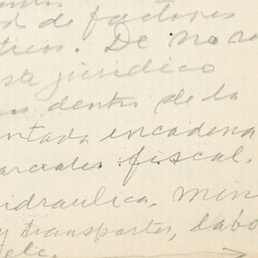 d de factores
ticos. De no ra
jurídico
os dentro de la
ntada encadena
arciales fiscal,
idraulica, min
y transportes, labo
etc.